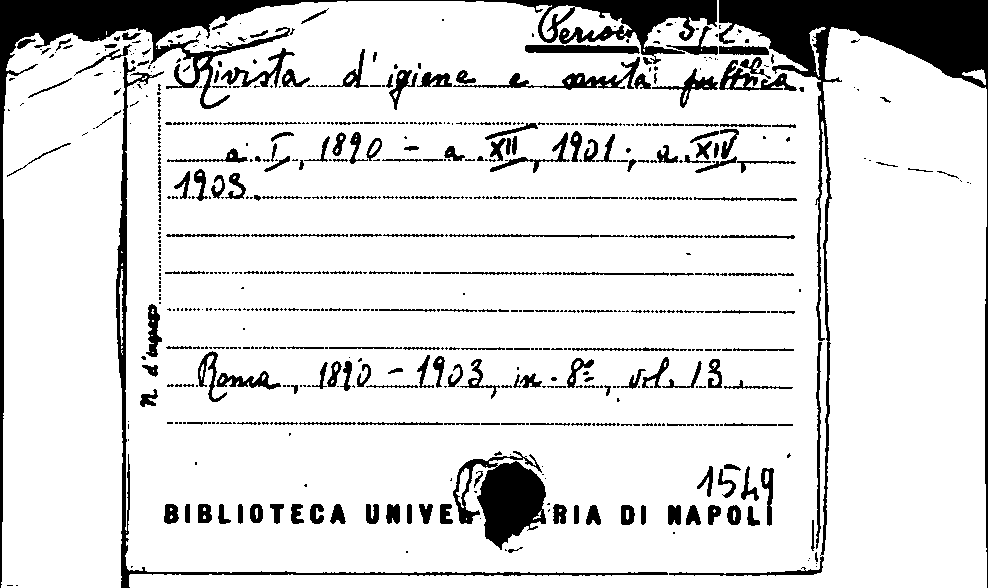 Period 5/2.
Rivista d'igiene e sanità pubblica.
a. I, 1890 - a. XII, 1901; a. XIV,
1903.
N. d'ingresso
Roma, 1890 - 1903, in-8º, vol. 13.
1549
BIBLIOTECA UNIVER ARIA DI NAPOLI